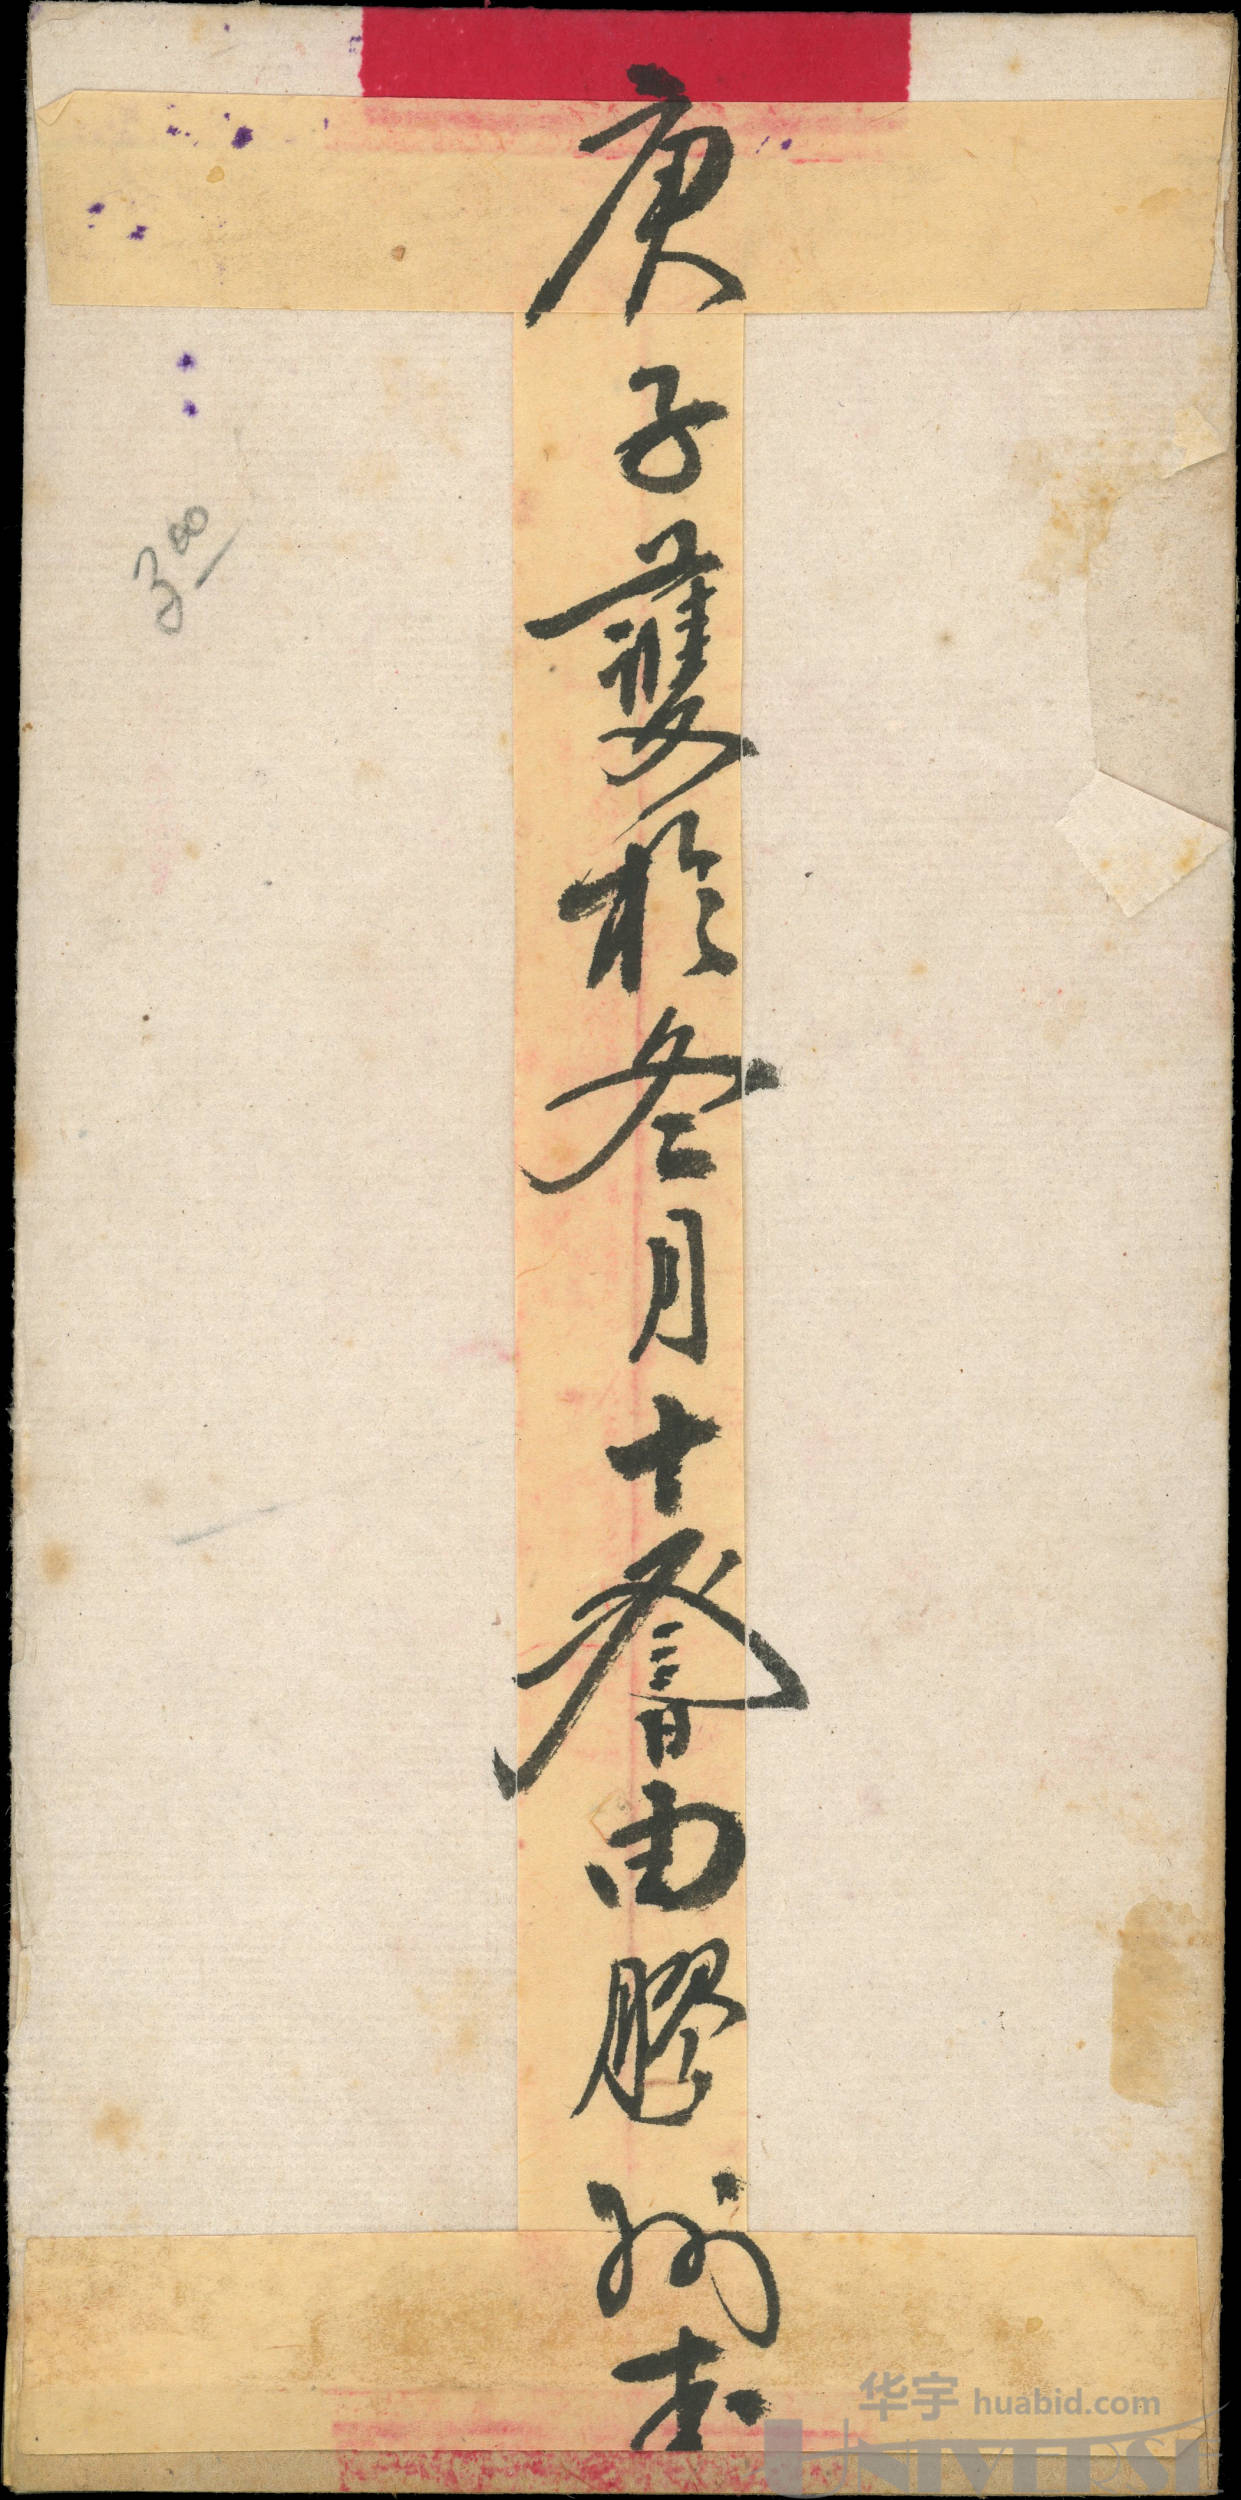 庚子護於冬月十
由膠州
3 00
华宇 huabid.com